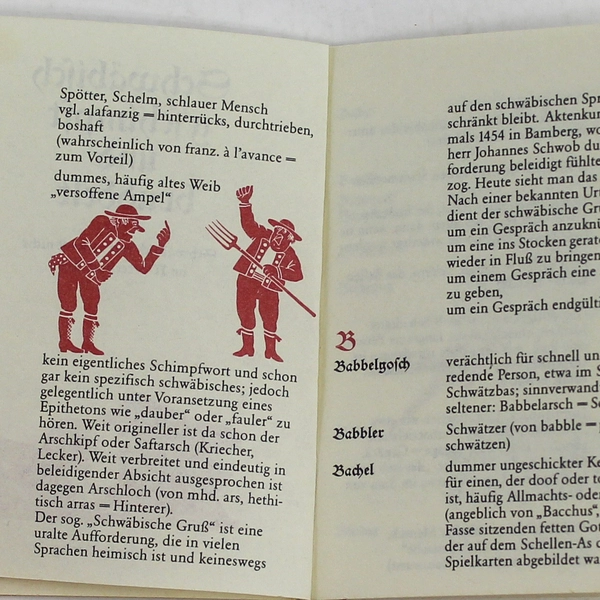 Spötter, Schelm, schlauer Mensch
vgl. alafanzig = hinterrücks, durchtrieben,
boshaft
(wahrscheinlich von franz. à l'avance =
zum Vorteil)
dummes, häufig altes Weib
„versoffene Ampel“
kein eigentliches Schimpfwort und schon
gar kein spezifisch schwäbisches; jedoch
gelegentlich unter Voransetzung eines
Epithetons wie „dauber“ oder „fauler“ zu
hören. Weit origineller ist da schon der
Arschkipf oder Saftarsch (Kriecher,
Lecker). Weit verbreitet und eindeutig in
beleidigender Absicht ausgesprochen ist
dagegen Arschloch (von mhd. ars, hethi-
tisch arras = Hinterer).
Der sog. „Schwäbische Gruß“ ist eine
uralte Aufforderung, die in vielen
Sprachen heimisch ist und keineswegs
auf den schwäbischen Spr
schränkt bleibt. Aktenkun
mals 1454 in Bamberg, wo
herr Johannes Schwob du
forderung beleidigt fühlte
zog. Heute sieht man das
Nach einer bekannten Ur
dient der schwäbische Gru
um ein Gespräch anzuknü
um eine ins Stocken gerat
wieder in Fluß zu bringen
um einem Gespräch eine
zu geben,
um ein Gespräch endgülti
B
Babbelgosch verächtlich für schnell un
redende Person, etwa im S
Schwätzbas; sinnverwand
seltener: Babbelarsch = S
Babbler Schwätzer (von babble =
schwätzen)
Bachel dummer ungeschickter Ke
für einen, der doof oder to
ist, häufig Allmachts- ode
(angeblich von „Bacchus“,
Fasse sitzenden fetten Got
der auf dem Schellen-As d
Spielkarten abgebildet wa